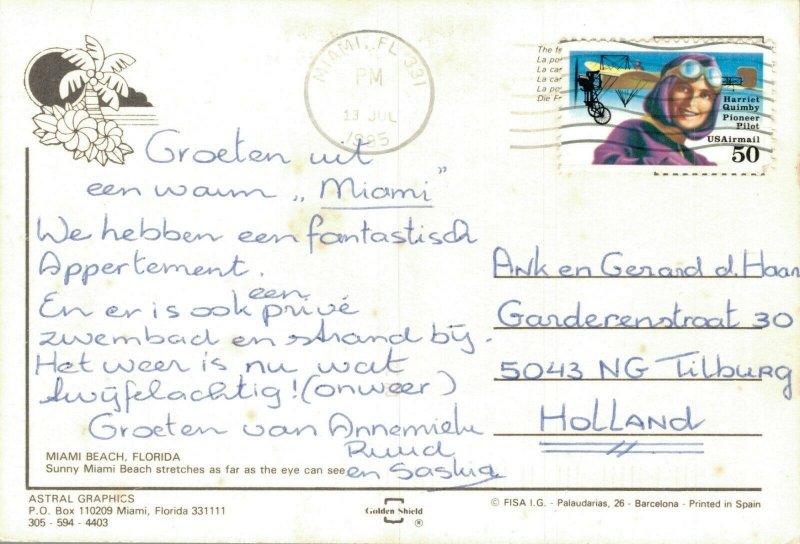 MIAMI, FL 331
PM
13 JUL
1995
The fa
La po
La car
La car
La po
Die F
Harriet
Quimby
Pioneer
Pilot
USAirmail
50
Groeten uit
een warm „Miami"
We hebben een fantastisch
Appertement.
En er is ook een privé
zwembad en strand bij.
Het weer is nu wat
twijfelachtig! (onweer)
Groeten van Annemieke
Ruud
en Saskia
Ank en Gerard d. Haan
Garderenstraat 30
5043 NG Tilburg
HOLLAND
MIAMI BEACH, FLORIDA
Sunny Miami Beach stretches as far as the eye can see
ASTRAL GRAPHICS
P.O. Box 110209 Miami, Florida 331111
305 - 594 - 4403
Golden Shield
®
© FISA I.G. - Palaudarias, 26 - Barcelona - Printed in Spain